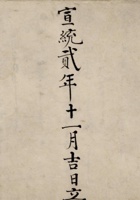 宣統貳年十一月吉日立